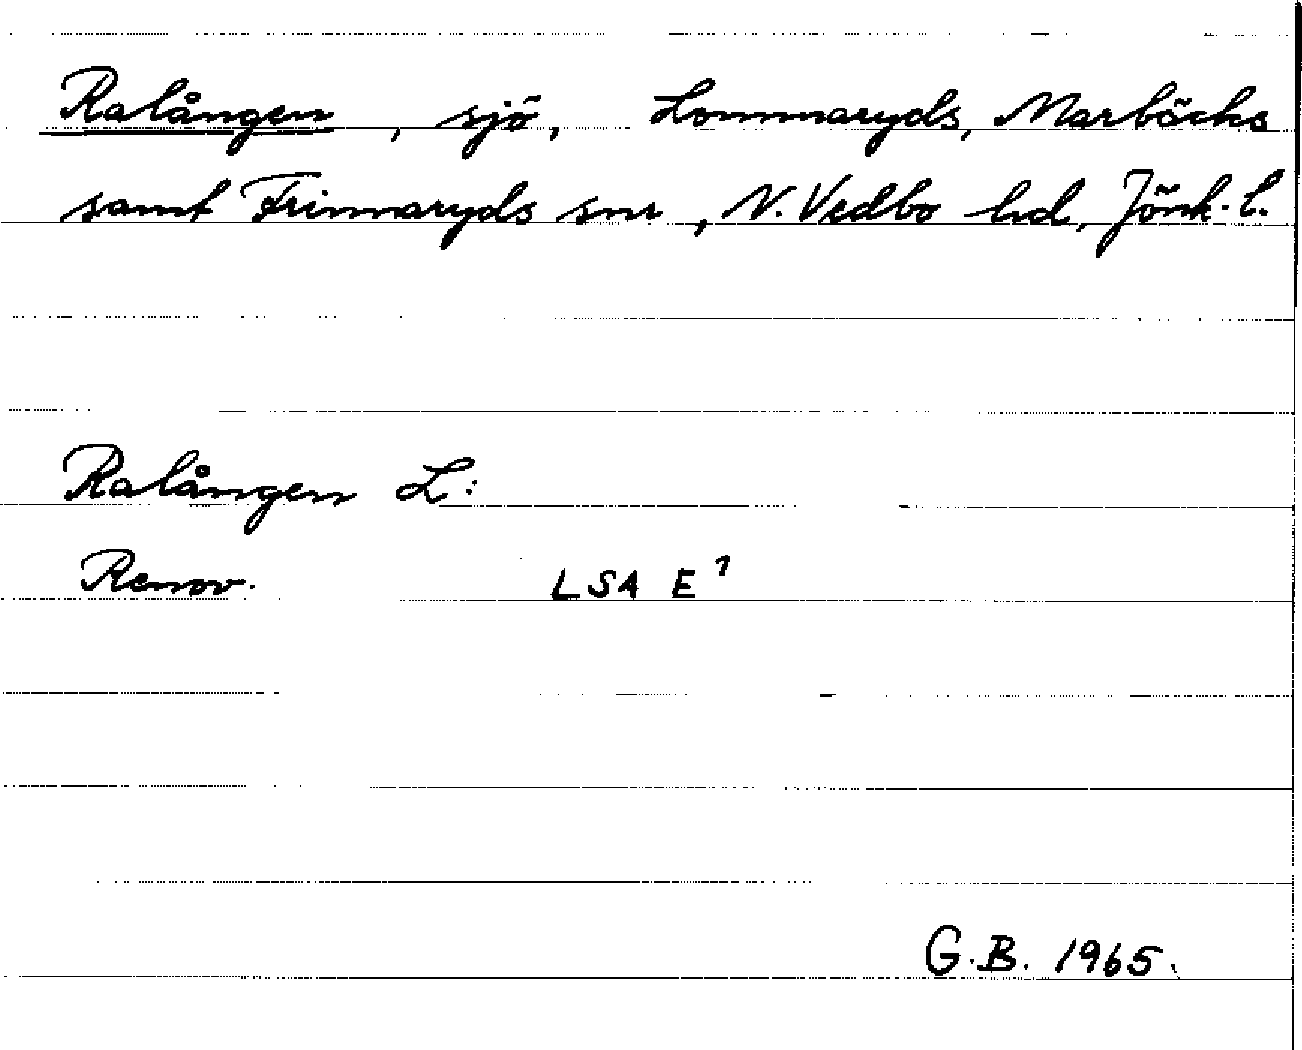 Ralången, sjö, Lommaryds, Marbäcks
samt Frinnaryds snr, N. Vedbo hd, Jönk. l.
Ralången L:
Renov. LSA E¹
G.B. 1965.